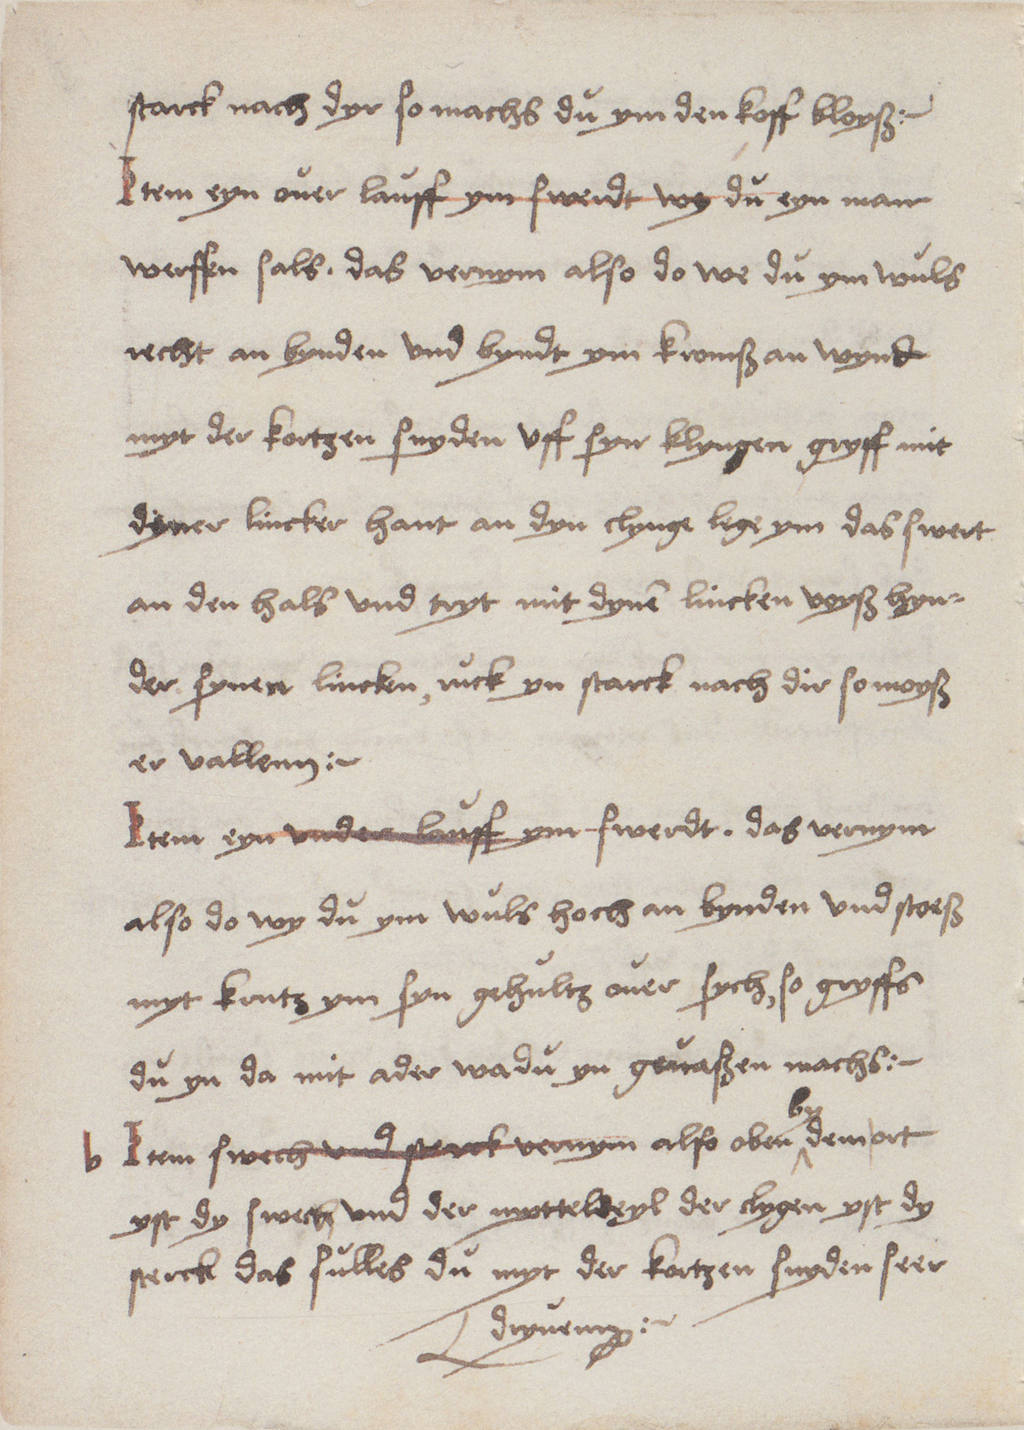 starck nach dyr so machs dů ym den koff bloyß :~
Item eyn ouer lauff ym swerdt wy dů eyn man
werffen sals . das vernym also do we dů ym wůls
recht an bynden vnd byndt ym kromß an wynd
myt der kortzen snyden vff syn klyngen gryff mit
dyner lincker hant an dyn clynge lege ym das swert
an den hals vnd tryt mit dynē lincken voyß hyn-
der synen lincken, růck yn starck nach dir so moyß
er vallenn :~
Item eyn vnder lauff ym swerdt . das vernym
also do wy dů ym wůls hoch an bynden vnd stoeß
myt krutz ym syn gehůltz ouer sych, so gryffs
dů yn da mit ader wa dů yn gevaßen machs :~
b Item swech vnd sterck vernym also oben by dem ort
yst dy swech vnd der myttelteyl der clygen yst dy
sterck das sůlles dů myt der kortzen snyden seer
dryvenn :~